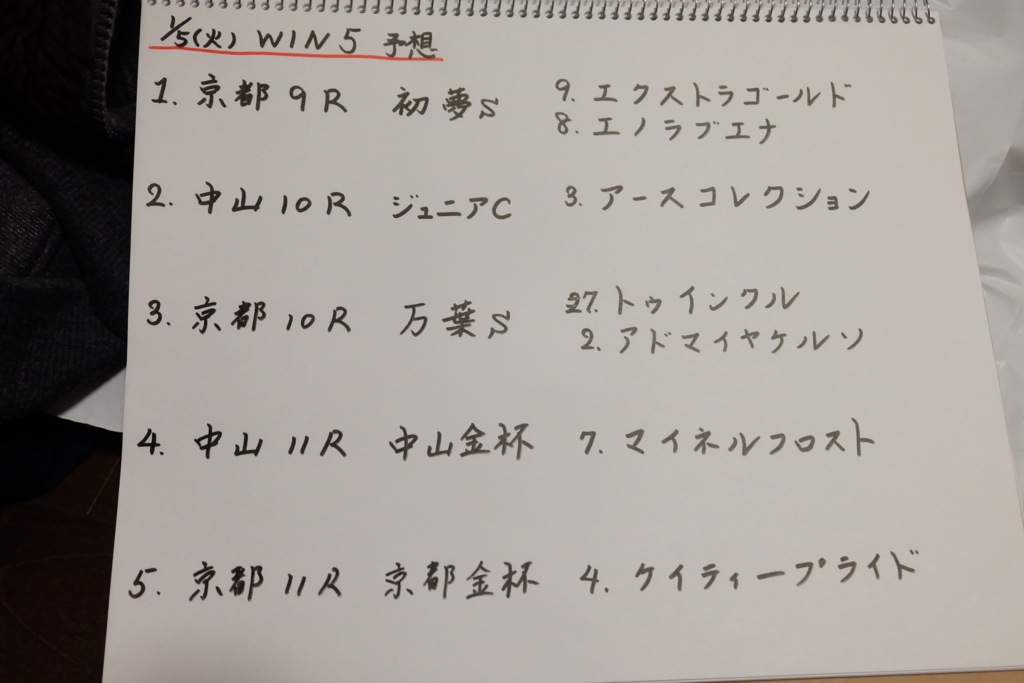 1/5(火) WIN5 予想
1. 京都 9R 初夢S 9. エクストラゴールド
8. エノラブエナ
2. 中山 10R ジュニアC 3. アースコレクション
3. 京都 10R 万葉S 7. トゥインクル
2. アドマイヤケルソ
4. 中山 11R 中山金杯 7. マイネルフロスト
5. 京都 11R 京都金杯 4. ケイティープライド